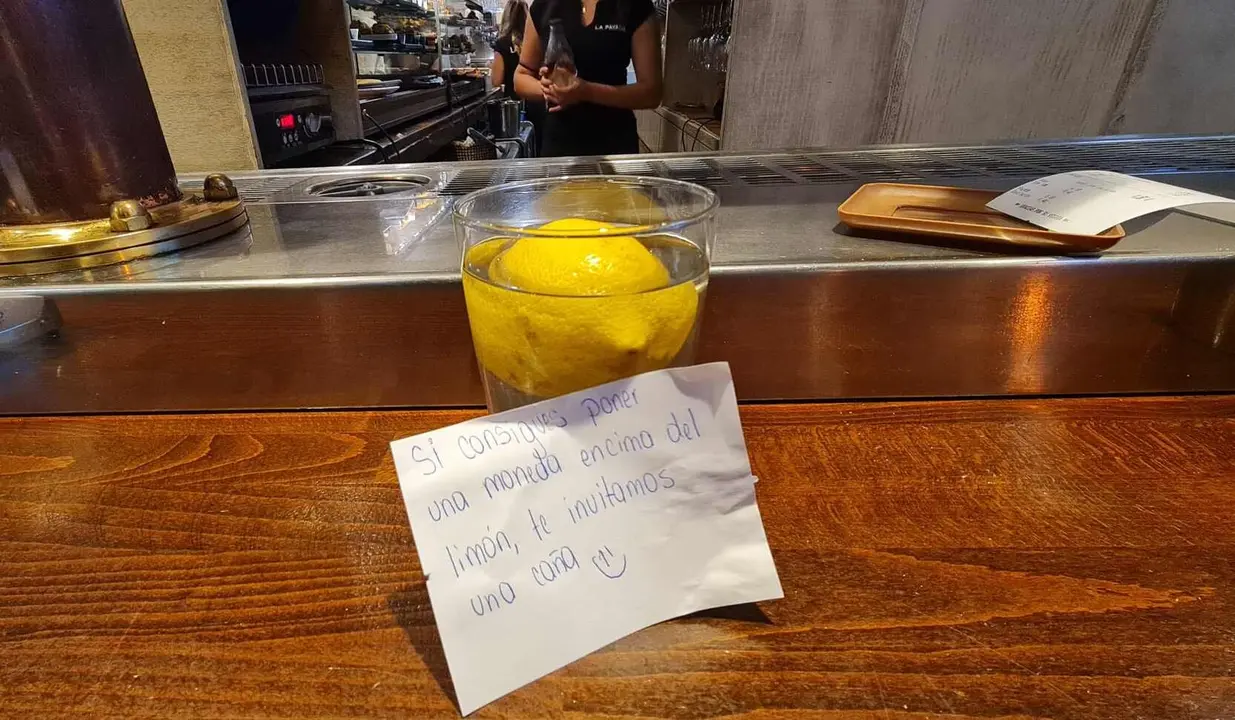 LA PAYA
Si consigues poner
una moneda encima del
limón, te invitamos
una caña